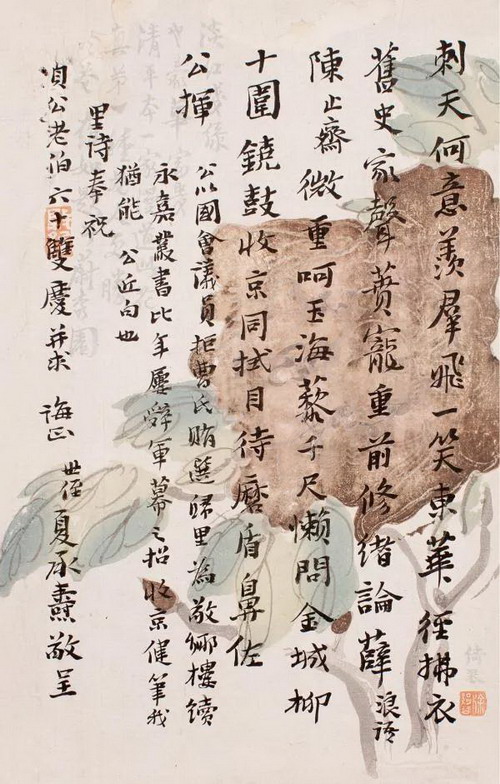 刺天何意羨羣飛一笑東華徑拂衣
舊史家聲蕡寵重前修緒論薛浪語
陳止齋微重呵玉海藜千尺懶問金城柳
十圍鐃鼓收京同拭目待磨盾鼻佐
公揮
公以國會議員拒曹氏賄選歸里為敬鄉樓續
永嘉叢書比年屢辭軍幕之招收京健筆我
猶能 公近句也
里詩奉祝
貞公老伯六十雙慶并求 誨正 世侄夏承燾敬呈